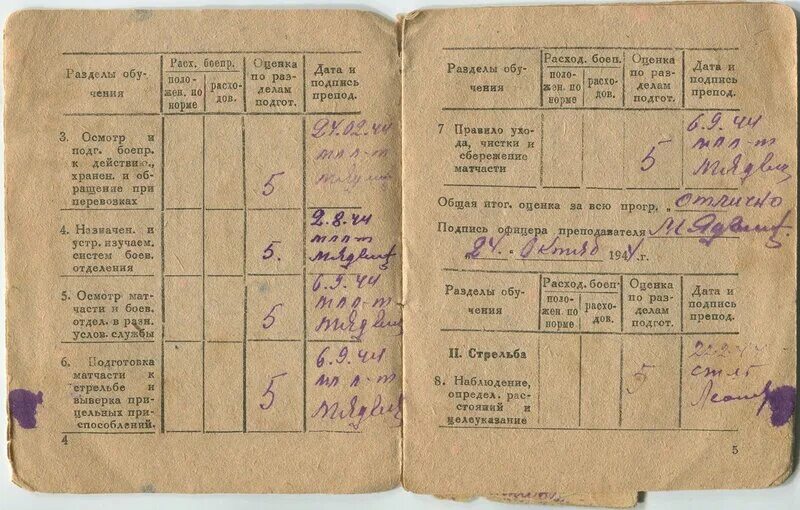 Разделы обу-
чения
Расх. боепр.
полож-
жен. по
норме
расхо-
дов.
Оценка
по раз-
делам
подгот.
Дата и
подпись
препод.
3. Осмотр и
подг. боепр.
к действию,
хранен. и об-
ращение при
перевозках
5
24.02.44
мл л-т
4. Назначен. и
устр. изучаем.
систем боев.
отделения
5.
2.8.44
мл лт
МЯдвиг
5. Осмотр мат-
части и боев.
отдел. в разн.
услов. службы
5
6.9.44
мл л-т
МЯдвиг
6. Подготовка
матчасти к
стрельбе и
выверка при-
цельных при-
способлений.
5
6.9.44
мл л-т
МЯдвиг
4
Разделы обу-
чения
Расход. боеп.
полож-
жен. по
норме
расхо-
дов.
Оценка
по раз-
делам
подгот.
Дата и
подпись
препод.
7 Правило ухо-
да, чистки и
сбережение
матчасти
5
6.9.44
мл л-т
МЯдвиг
Общая итог. оценка за всю прогр. отлично
Подпись офицера преподавателя МЯдвиг
"24" Октяб 1944 г.
Разделы обу-
чения
Расход. боеп.
полож-
жен. по
норме
расхо-
дов.
Оценка
по раз-
делам
подгот.
Дата и
подпись
препод.
II. Стрельба
8. Наблюдение,
определ. рас-
стояний и
целеуказание
5
5